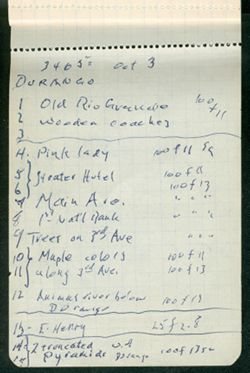 3465 Oct 3
DURANGO
1 Old Rio Grande 100 f11
2 wooden coaches
3
4. Pink lady 100 f11
5 Strater Hotel 100 f11
6 100 f13
7 Main Ave. " " "
8 1st Natl Bank " " "
9 Trees on 3rd Ave " "
10 Maple colors 100 f11
11 along 3rd Ave. 100 f13
12 Animas river below 100 f13
Durango
13 - E. Henry 25 f2.8
14 2 truncated
Pyramids 100 f13